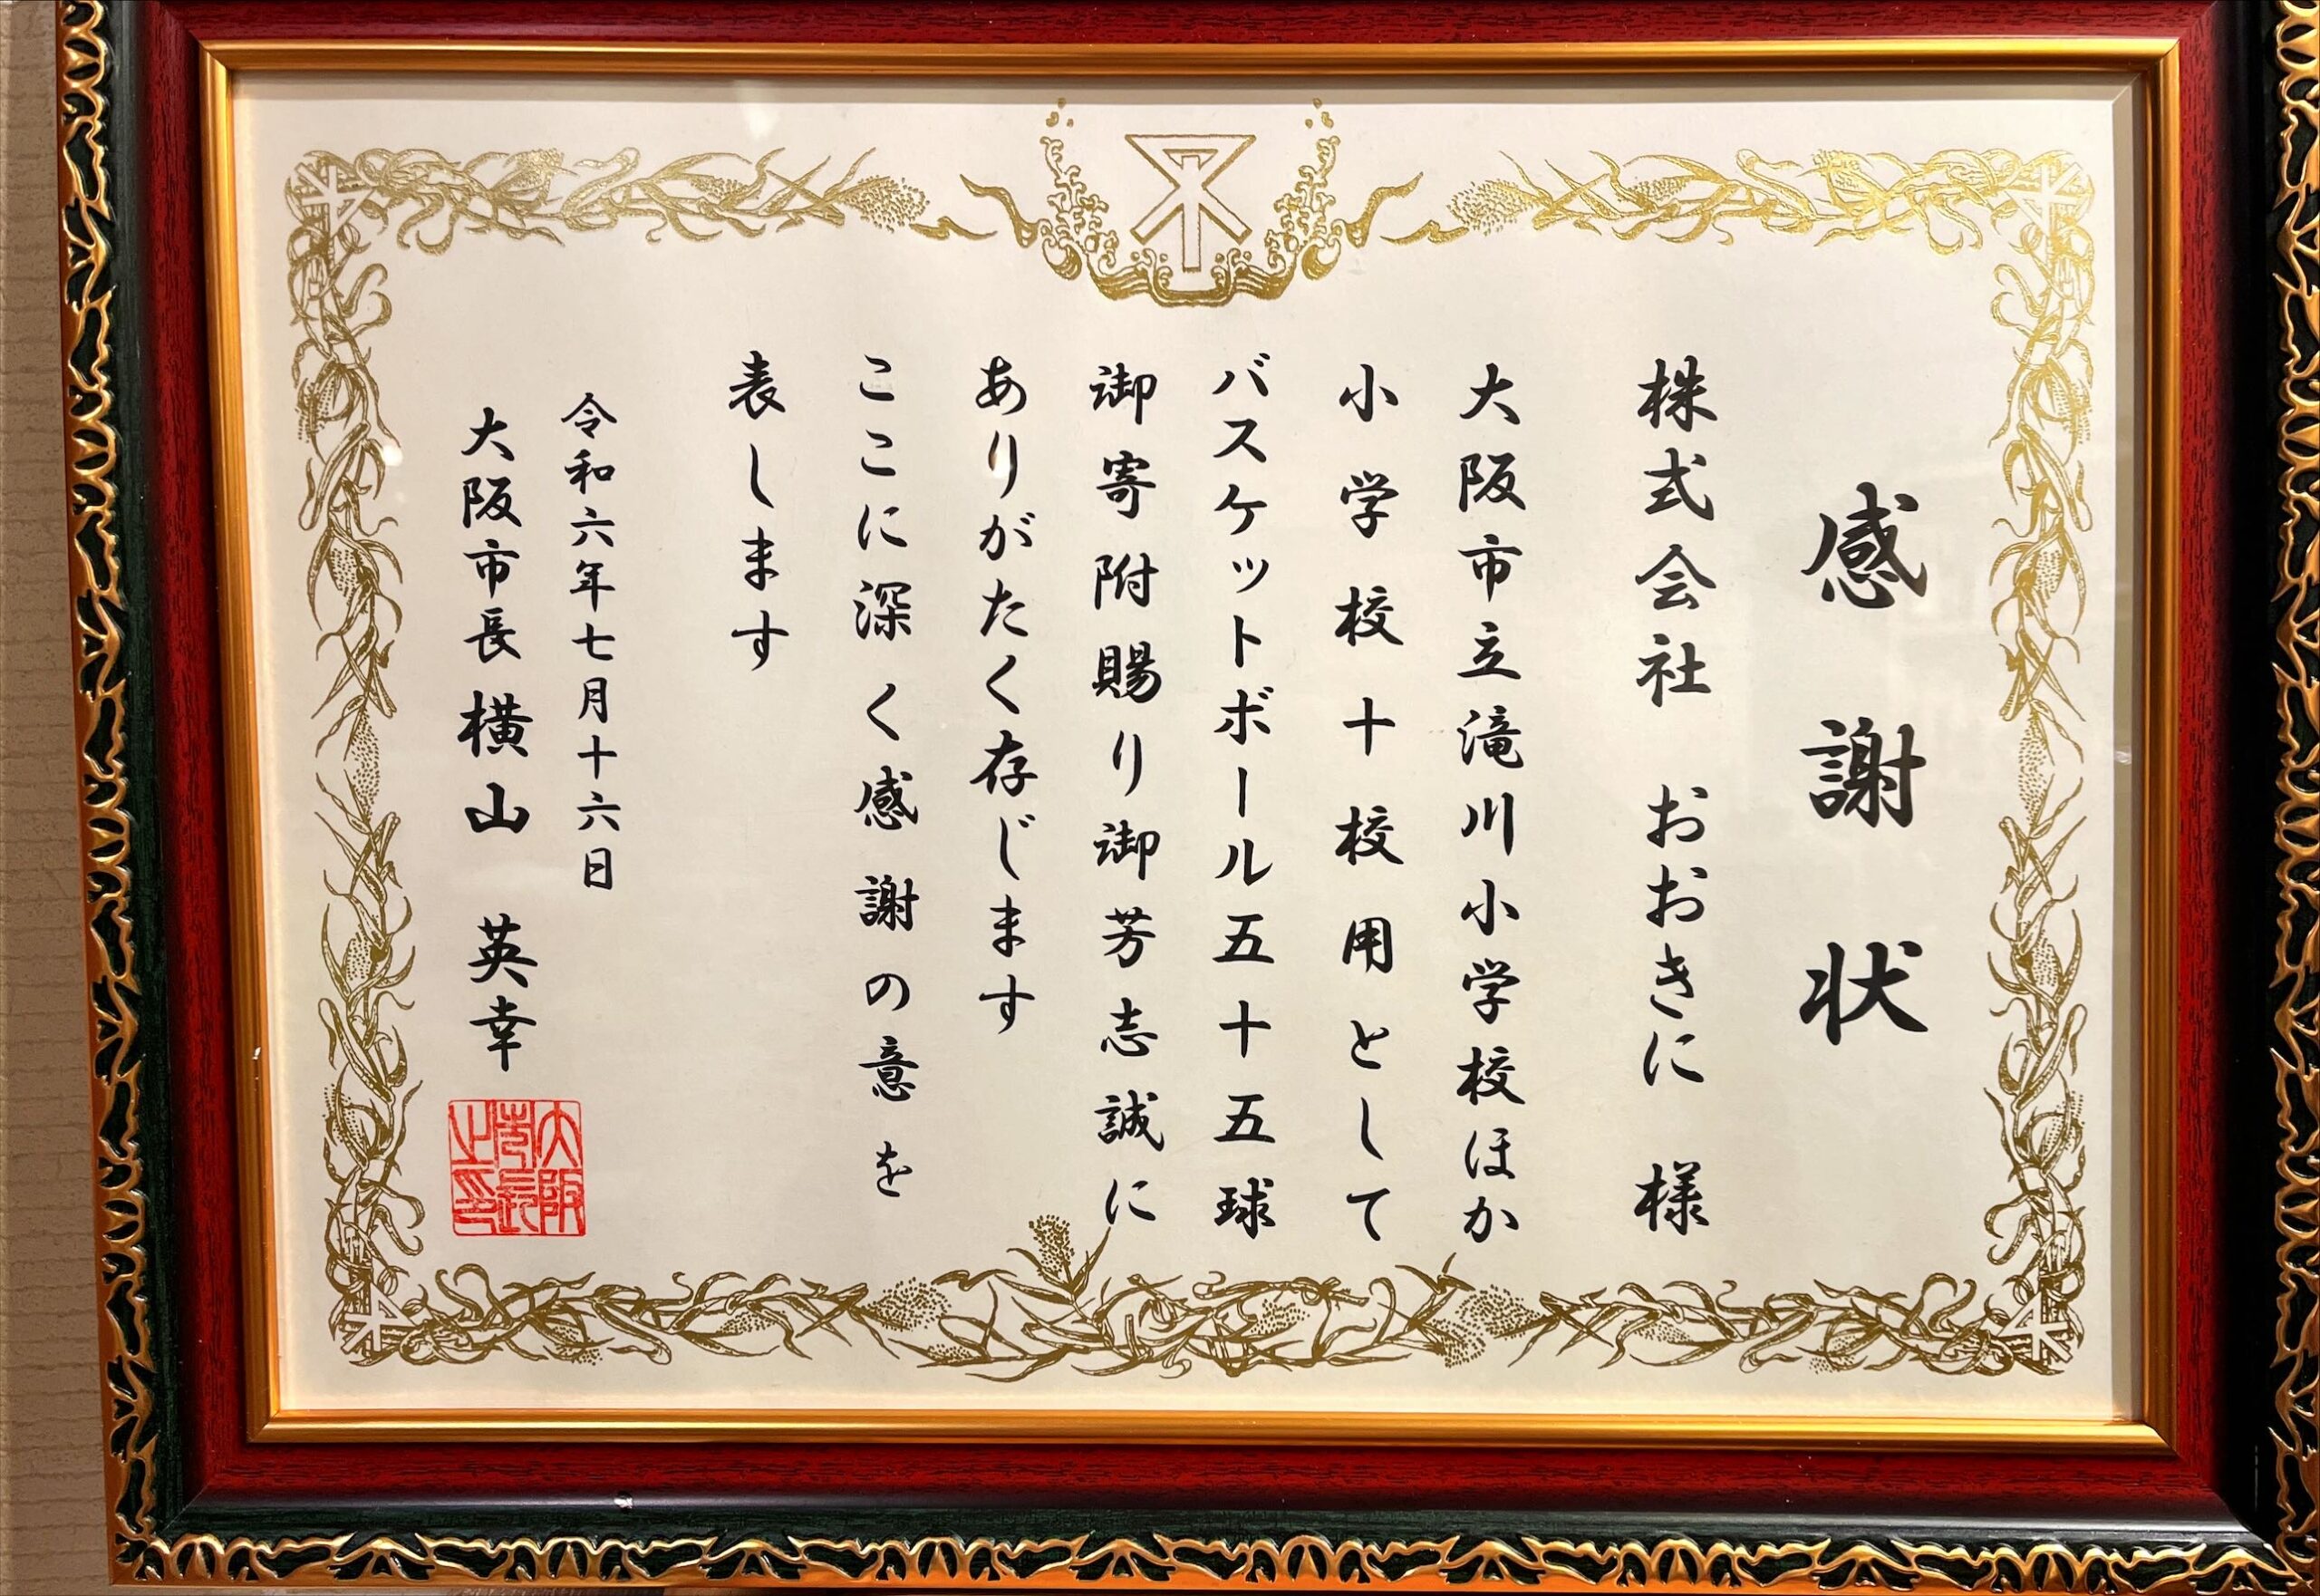 感謝状
株式会社 おおきに 様
大阪市立滝川小学校ほか
小学校十校用として
バスケットボール五十五球
御寄附賜り御芳志誠に
ありがたく存じます
ここに深く感謝の意を
表します
令和六年七月十六日
大阪市長 横山 英幸
大阪
市長
之印